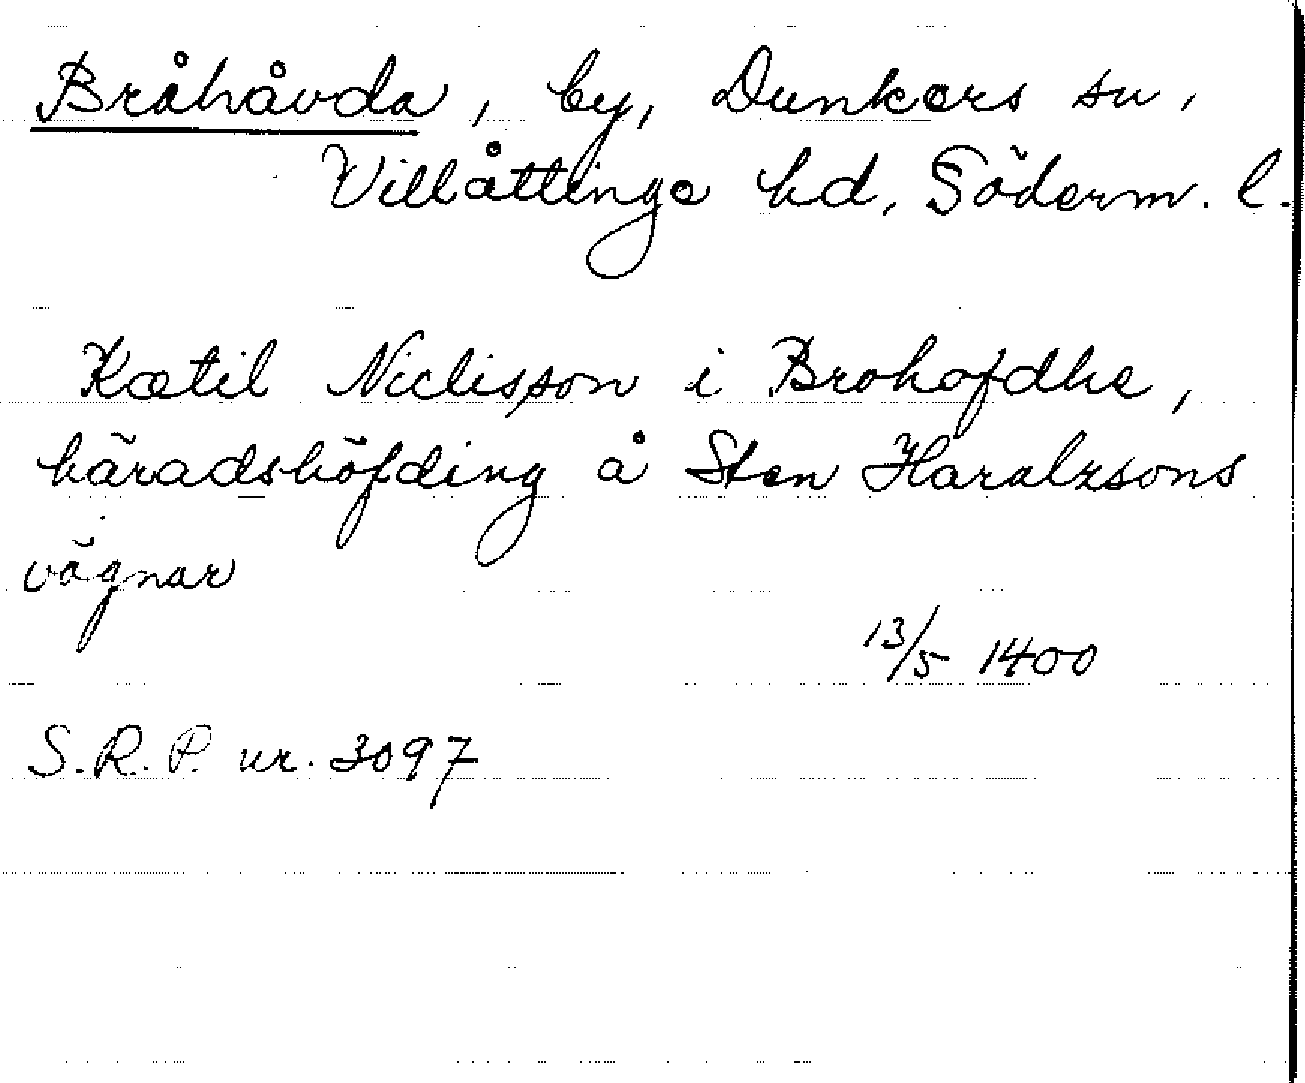 Bråhåvda, by, Dunkers sn,
Villåttinge hd, Söderm. l.
Kætil Niclisson i Brohofdhe,
häradshöfding å Sten Haralzsons
vägnar
13/5 1400
S.R.P. nr. 3097